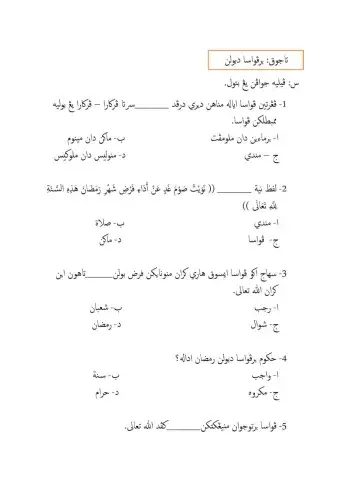 تاجوق: برڤواسا دبولن
س: ڤيليه جواڤن يڠ بتول.
1- ڤڠرتين ڤواسا اياله مناهن ديري درڤد _______سرتا ڤركارا – ڤركارا يڠ بوليه
ممبطلكن ڤواسا.
ا- برماءين دان ملومڤت
ب- ماكن دان مينوم
ج – مندي
د- منوليس دان ملوكيس
2- لفظ نية _______ (( نَوَيْتُ صَوْمَ غَدٍ عَنْ أَدَاءِ فَرْضِ شَهْرِ رَمَضَانَ هَذِهِ السَّنَةِ
لِلَّهِ تَعَالَى ))
ا- مندي
ب- صلاة
ج- ڤواسا
د- ماكن
3- سهاج اكو ڤواسا ايسوق هاري كران منونايكن فرض بولن______تاهون اين
كران الله تعالى.
ا- رجب
ب- شعبان
ج- شوال
د- رمضان
4- حكوم برڤواسا دبولن رمضان اداله؟
ا- واجب
ب- سنة
ج- مكروه
د- حرام
5- ڤواسا برتوجوان منيڠكتكن_______كڤد الله تعالى.